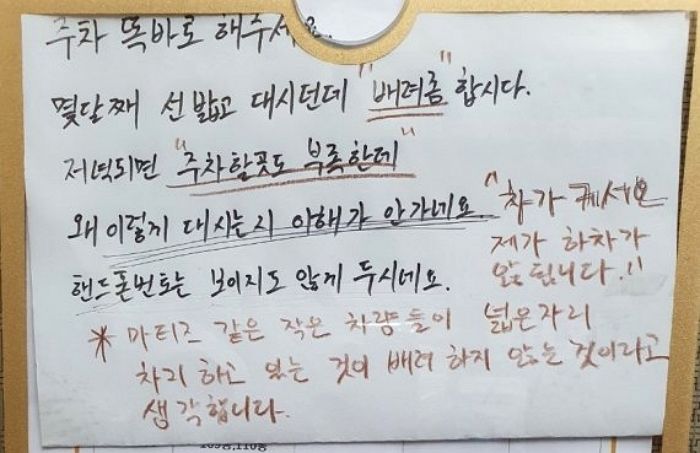 주차 똑바로 해주세요.
몇달째 선 밟고 대시던데 "배려좀" 합시다.
저녁되면 "주차할곳도 부족한데"
왜 이렇게 대시는지 이해가 안가네요
핸드폰번호는 보이지도 않게 두시네요.
"차가 커서요
제가 하차가
안됩니다!"
* 마티즈 같은 작은 차량들이 넓은자리
차리 하고 있는 것이 배려 하지 않는 것이라고
생각합니다.
109g,110g